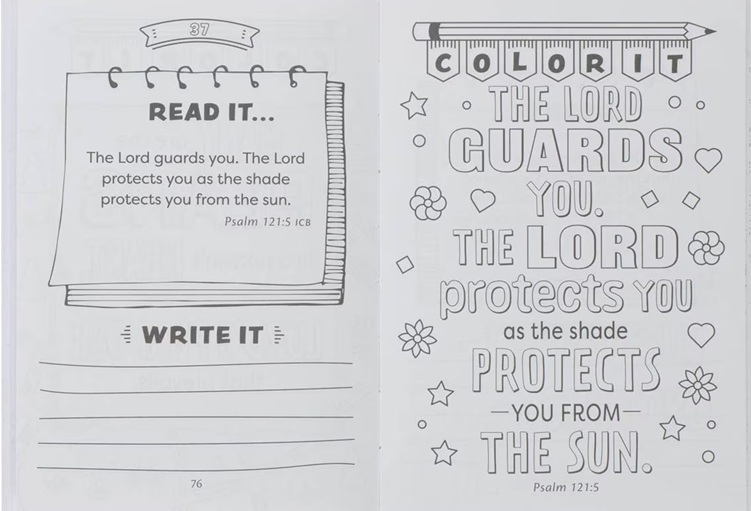 37
READ IT...
The Lord guards you. The Lord
protects you as the shade
protects you from the sun.
Psalm 121:5 ICB
WRITE IT
76
COLOR IT
THE LORD
GUARDS
YOU.
THE LORD
protects YOU
as the shade
PROTECTS
—YOU FROM—
THE SUN.
Psalm 121:5